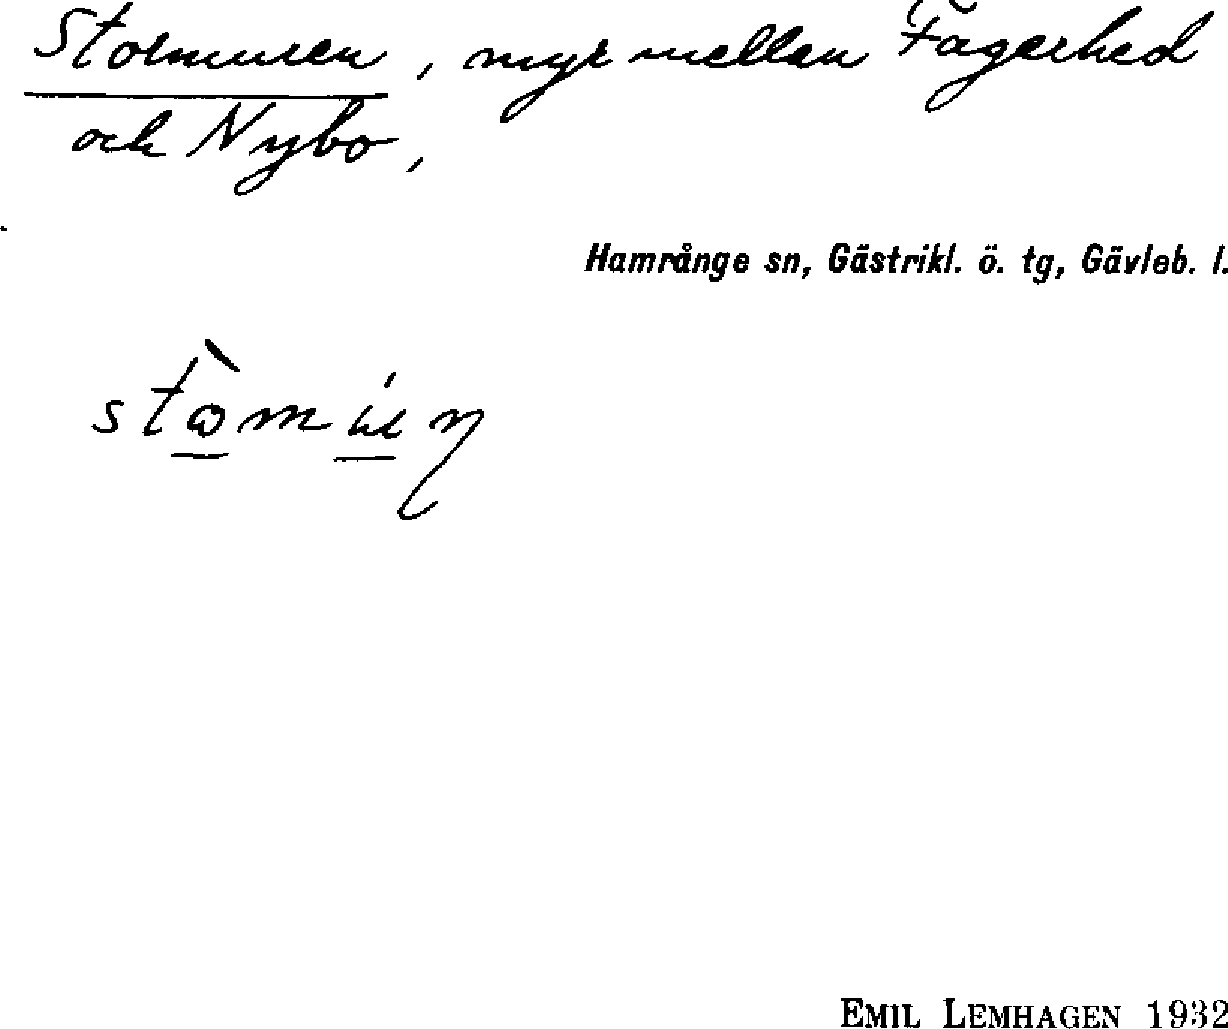 Stormuren, myr mellan Fagerhed
och Nybo,
Hamrånge sn, Gästrikl. ö. tg, Gävleb. l.
EMIL LEMHAGEN 1932